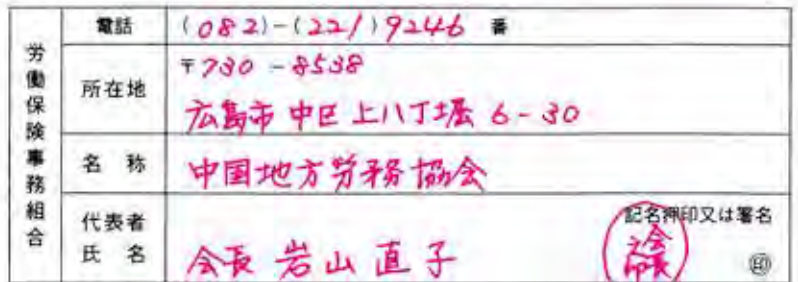 労働保険事務組合
電話 (082)-(221)9246 番
所在地 〒730-8538
広島市中区上八丁堀 6-30
名 称 中国地方労務協会
代表者
氏 名 会長 岩山直子
記名押印又は署名
印